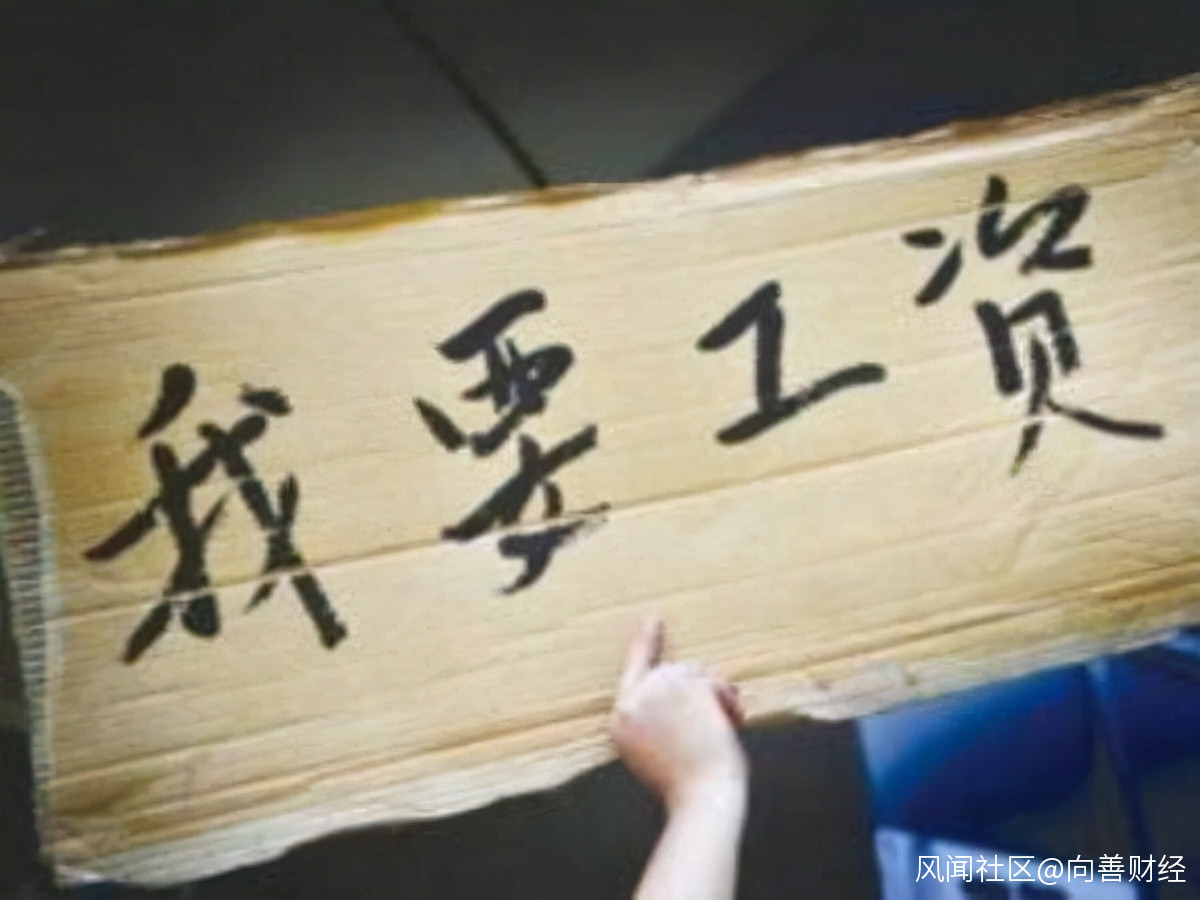 我要工资
风闻社区@向善财经